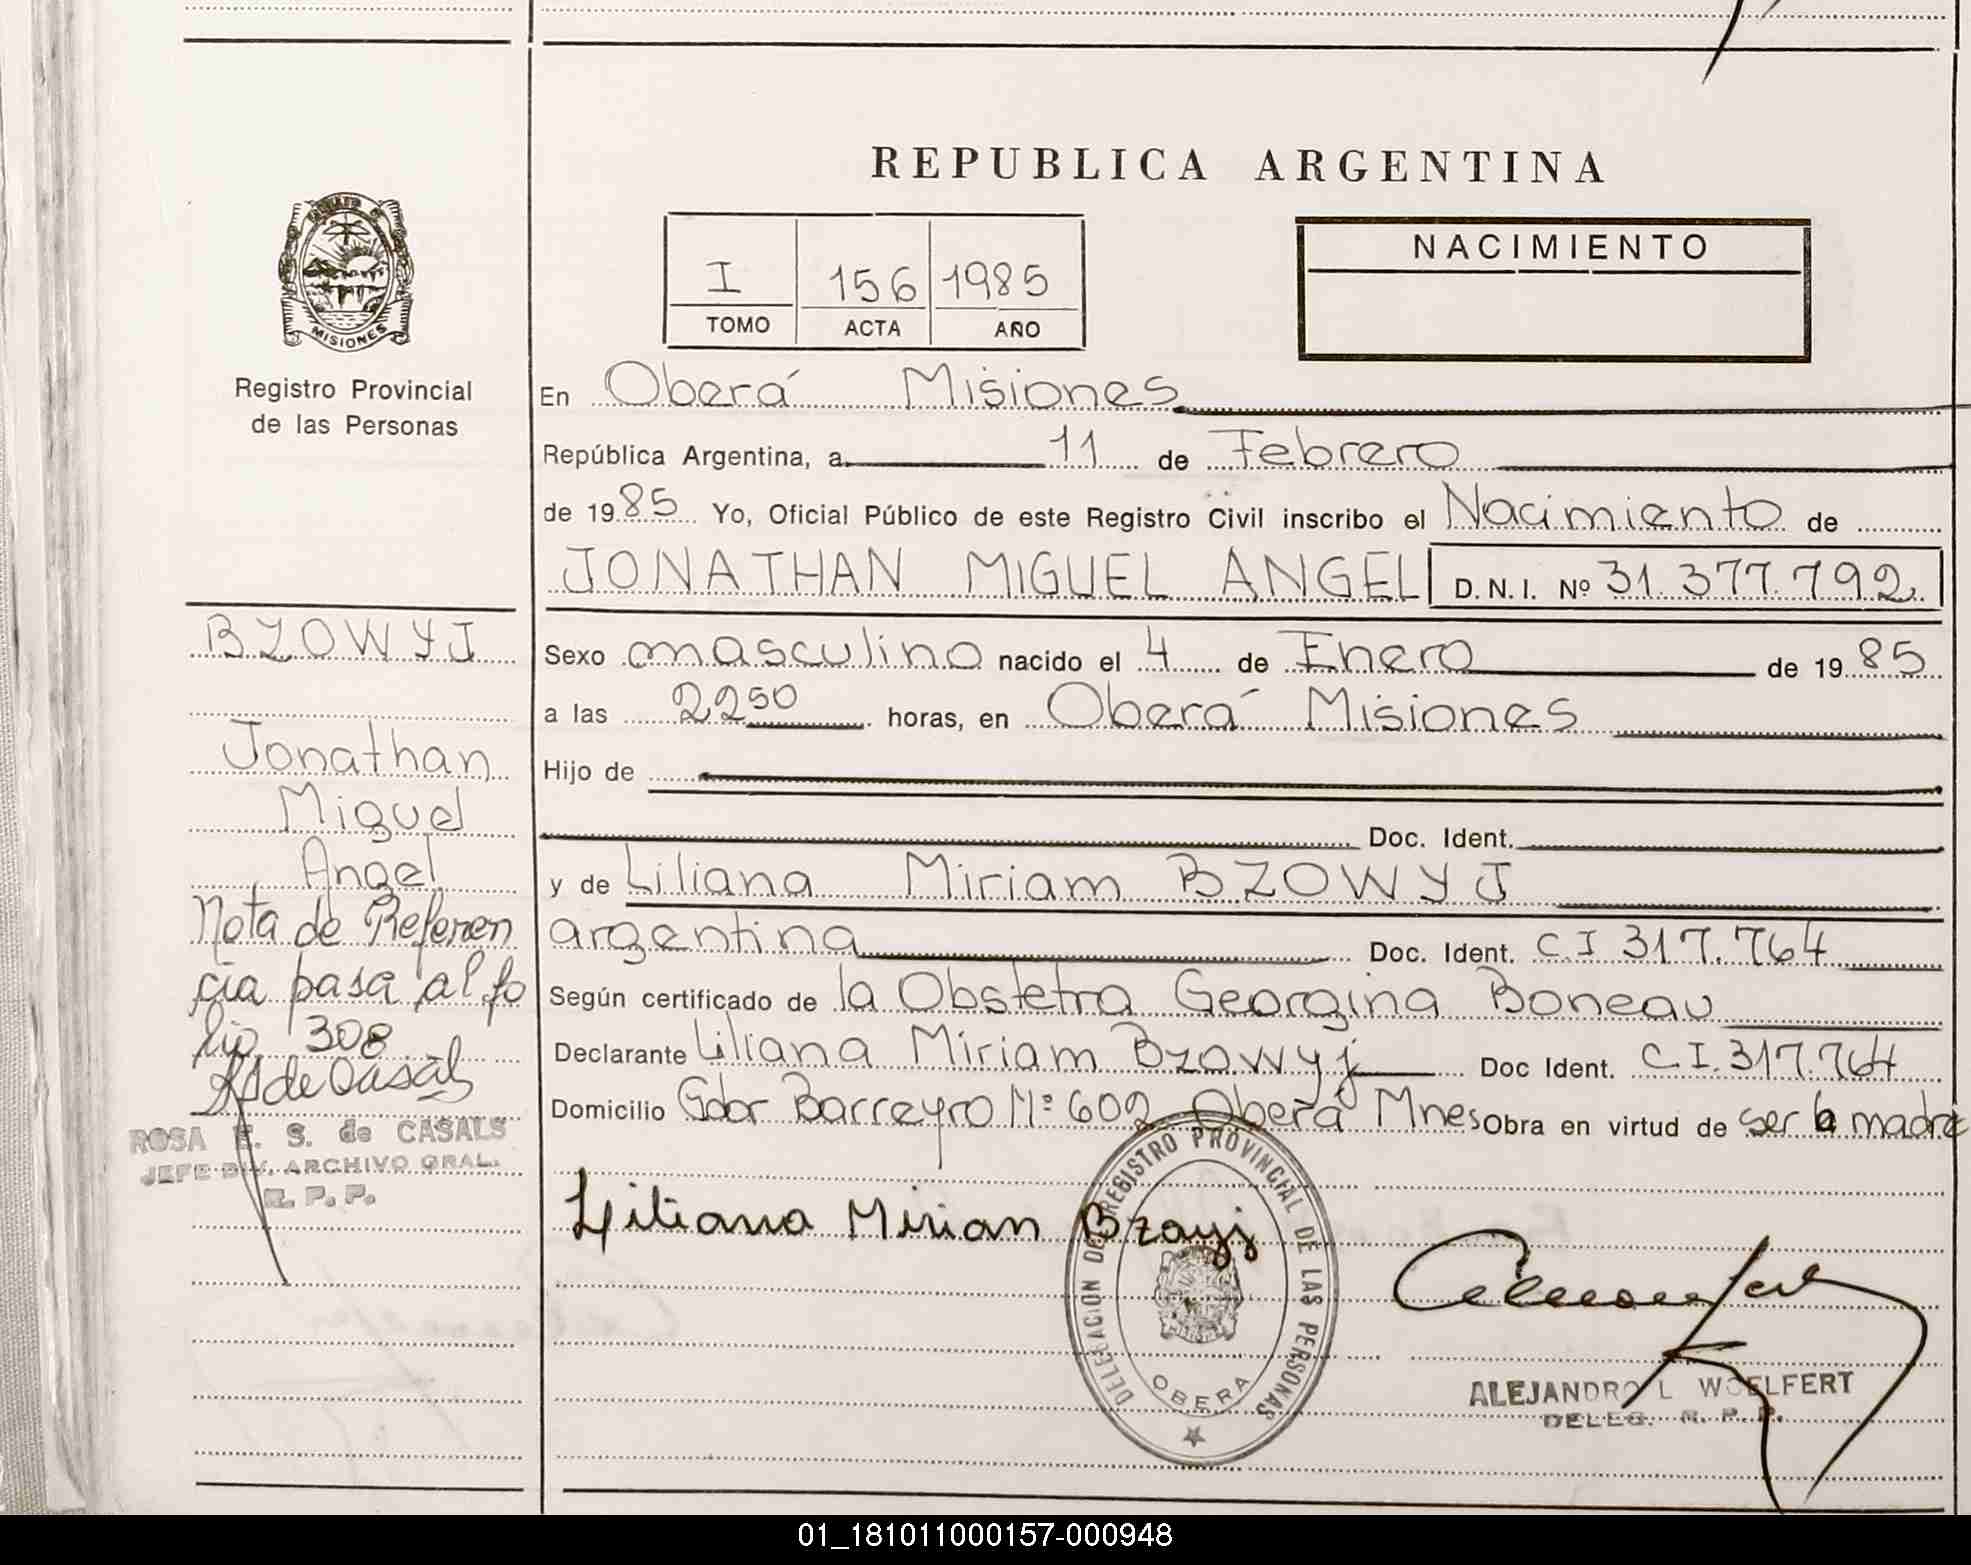 REPUBLICA ARGENTINA
I 156 1985
TOMO ACTA AÑO
NACIMIENTO
MISIONES
Registro Provincial
de las Personas
En Oberá Misiones
República Argentina, a 11 de Febrero
de 1985 Yo, Oficial Público de este Registro Civil inscribo el Nacimiento de
JONATHAN MIGUEL ANGEL D.N.I. Nº 31.377.792
Sexo masculino nacido el 4 de Enero de 1985
a las 22 50 horas, en Oberá Misiones
Hijo de
Doc. Ident.
y de Liliana Miriam BZOWYJ
argentina Doc. Ident. C I 317.764
Según certificado de la Obstetra Georgina Boneau
Declarante Liliana Miriam Bzowyj Doc Ident. C I. 317.764
Domicilio Gdor Barreyro Nº 602 Oberá Mnes Obra en virtud de ser la madre
BZOWYJ
Jonathan
Miguel
Angel
Nota de Referen
cia pasa al fo
lio 308
ROSA E. S. de CASALS
JEFE DIV. ARCHIVO GRAL.
R. P. P.
Liliana Mirian Bzoyj
DELEGACION DEL REGISTRO PROVINCIAL DE LAS PERSONAS
OBERA
ALEJANDRO L WOELFERT
DELEG. R. P. P.
01_181011000157-000948